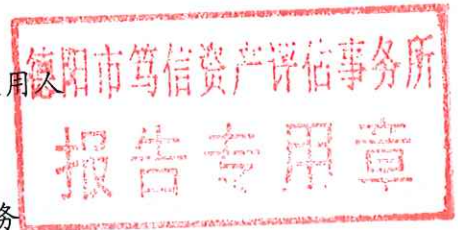 德阳市笃信资产评估事务所
用人
报告专用章
务